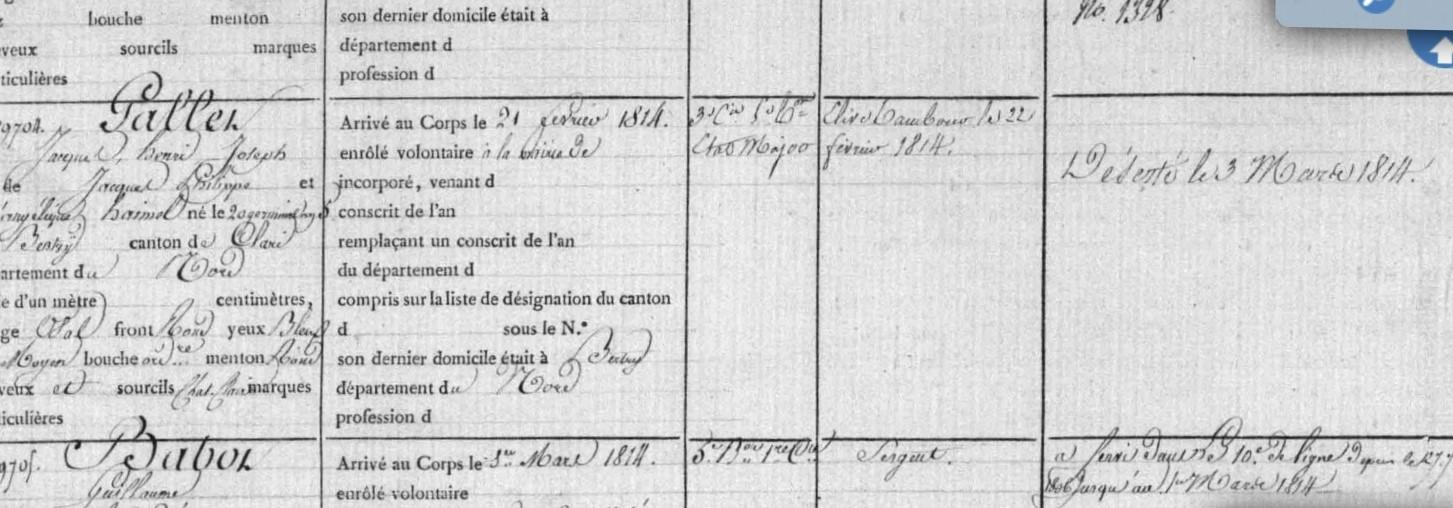 bouche menton
veux sourcils marques
ticulières
son dernier domicile était à
département d
profession d
No. 1328.
9704. Pallez
Jacques, henri Joseph
de Jacques Philippe et
haimol né le 20 germinal an 5
Bertry canton de Clari
artement du Nord
e d'un mètre centimètres,
ge Oval front Rond yeux Bleus
Moyen bouche ordre menton Rond
veux et sourcils Chat. Clair marques
iculières
Arrivé au Corps le 21 février 1814.
enrôlé volontaire à la mairie de
incorporé, venant d
conscrit de l'an
remplaçant un conscrit de l'an
du département d
compris sur la liste de désignation du canton
d sous le N.°
son dernier domicile était à Bertry
département du Nord
profession d
3e Cie 5e Bon
Etat Major
Elève tambour le 22
février 1814.
Déserté le 3 Mars 1814.
9705. Baboz
Guillaume
Arrivé au Corps le 1er Mars 1814.
enrôlé volontaire
5e Bon 1re Cie
Sergent.
a servi dans le 10e de ligne depuis le
1806 jusqu'au 1er Mars 1814